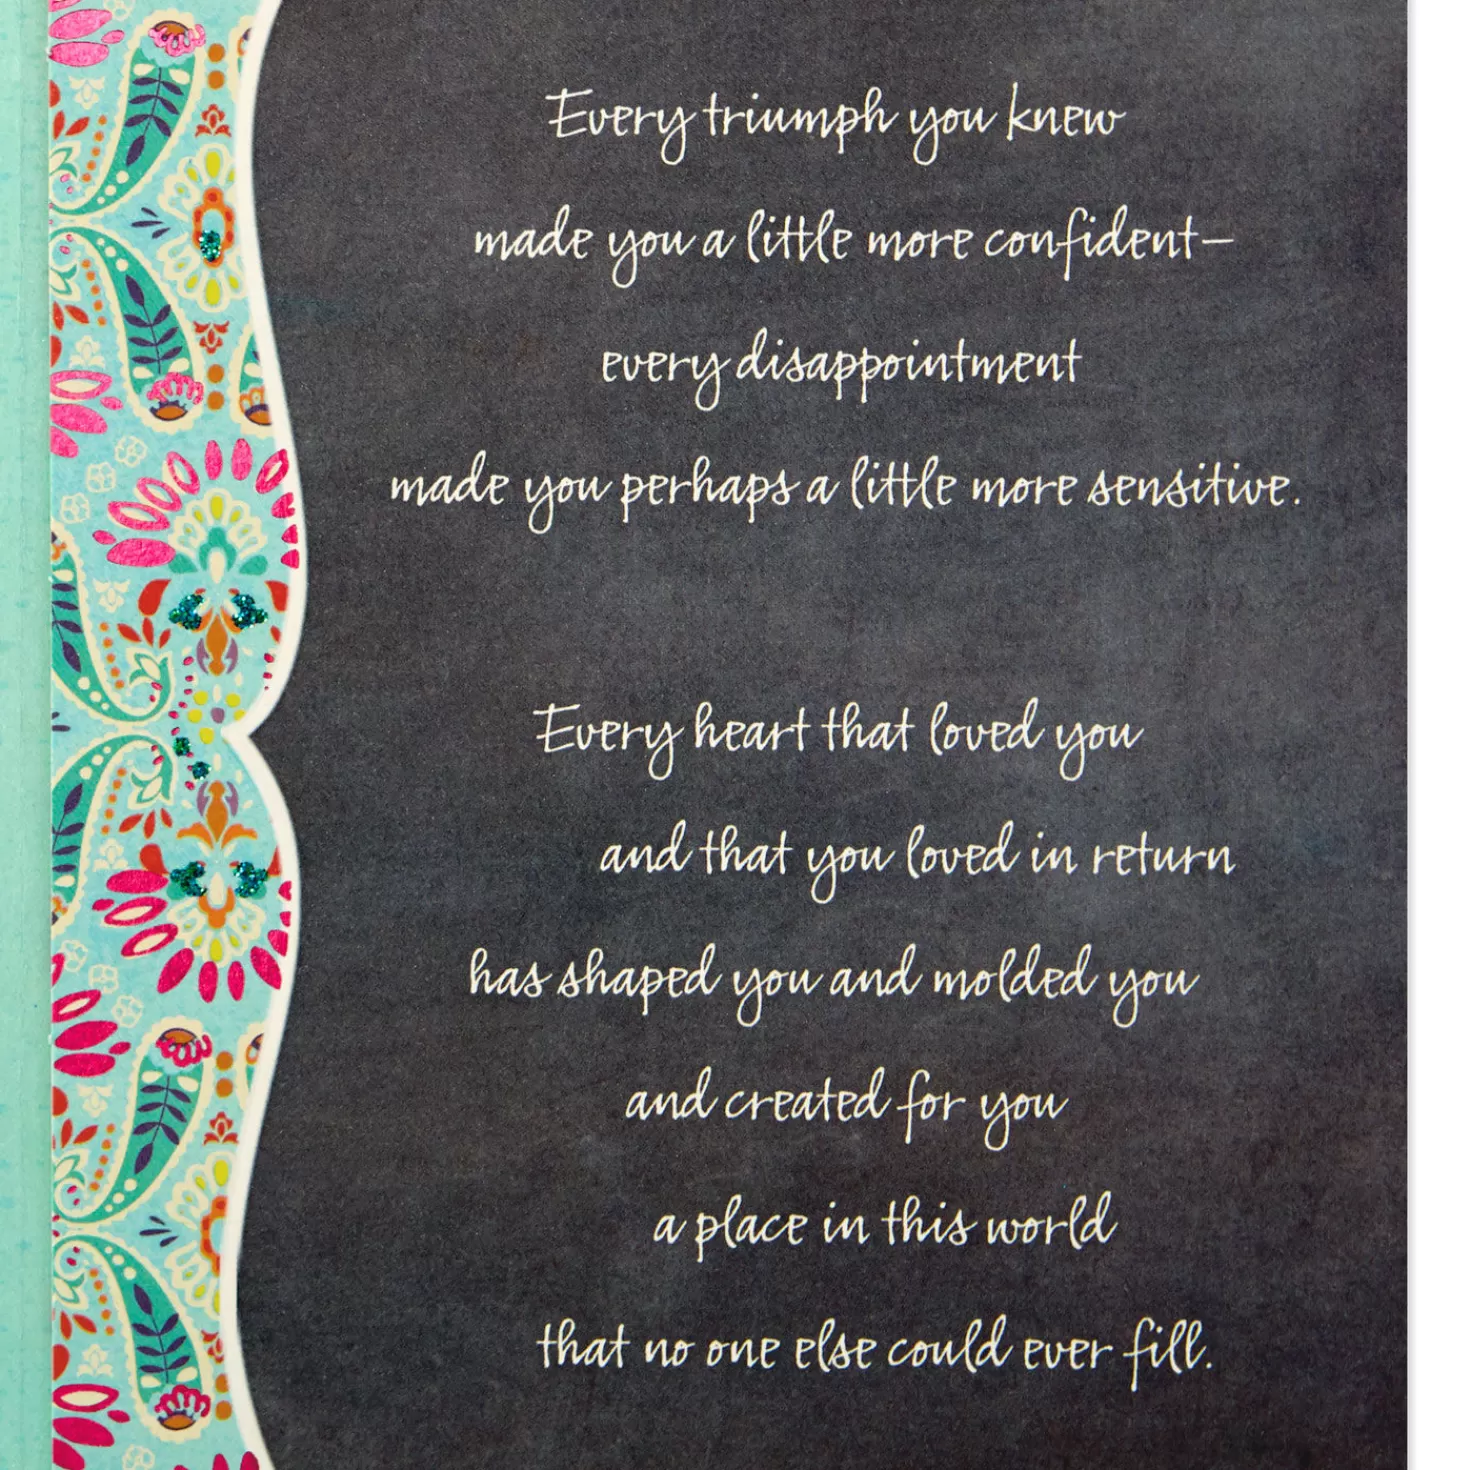 Every triumph you knew
made you a little more confident—
every disappointment
made you perhaps a little more sensitive.
Every heart that loved you
and that you loved in return
has shaped you and molded you
and created for you
a place in this world
that no one else could ever fill.